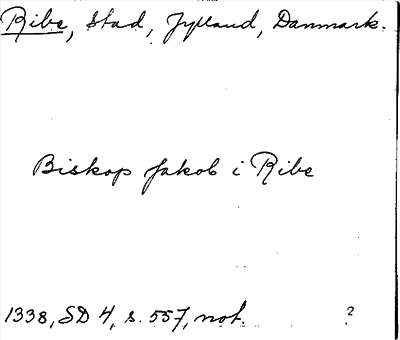 Ribe, Stad, Jylland, Danmark.
Biskop Jakob i Ribe
1338, SD 4, s. 557, not. ?